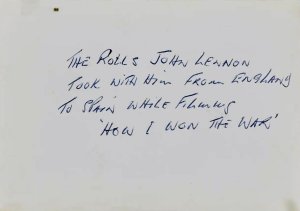 THE ROLLS JOHN LENNON
TOOK WITH HIM FROM ENGLAND
TO SPAIN WHILE FILMING
'HOW I WON THE WAR'